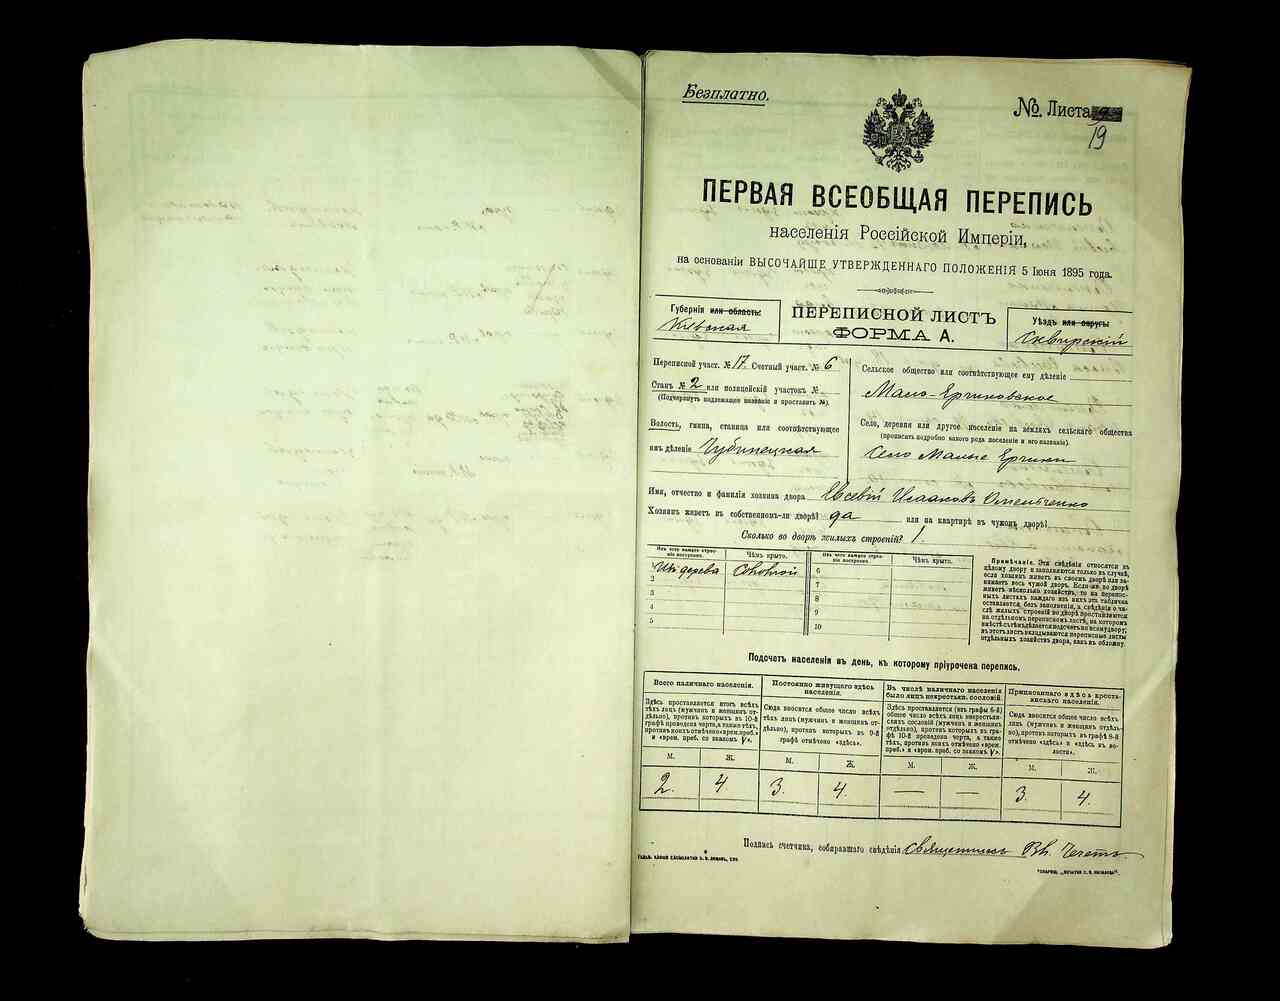 Безплатно.
№. Листа
19
ПЕРВАЯ ВСЕОБЩАЯ ПЕРЕПИСЬ
населенія Россійской Имперіи,
на основаніи ВЫСОЧАЙШЕ УТВЕРЖДЕННАГО ПОЛОЖЕНІЯ 5 Іюня 1895 года.
Губернія или область:
Кіевская
ПЕРЕПИСНОЙ ЛИСТЪ
ФОРМА А.
Уѣздъ или округъ
Сквирскій
Переписной участ. № 17. Счетный участ. № 6
Станъ № 2 или полицейскій участокъ №
(Подчеркнуть надлежащее названіе и проставить №).
Волость, гмина, станица или соотвѣтствующее
имъ дѣленіе Чубинецкая
Сельское общество или соотвѣтствующее ему дѣленіе
Мало-Ерчиковское
Село, деревня или другое поселеніе на земляхъ сельскаго общества
(прописать подробно какого рода поселеніе и его названіе).
Село Малые Ерчики
Имя, отчество и фамилія хозяина двора Евсевій Исааковъ
Хозяинъ живетъ въ собственномъ-ли дворѣ? да или на квартирѣ въ чужомъ дворѣ?
Сколько во дворѣ жилыхъ строеній? 1.
Изъ чего каждое строеніе построено.
Чѣмъ крыто.
Изъ чего каждое строеніе построено.
Чѣмъ крыто.
Изъ дерева Соломой
2
3
4
5
6
7
8
9
10
Примѣчаніе. Эти свѣдѣнія относятся къ
цѣлому двору и заполняются только въ случаѣ,
если хозяинъ живетъ въ своемъ дворѣ или занимаетъ
весь чужой дворъ. Если же во дворѣ
живетъ нѣсколько хозяйствъ, то на переписныхъ
листахъ каждаго изъ нихъ эта табличка
оставляется, безъ заполненія, а свѣдѣнія о числѣ
жилыхъ строеній во дворѣ проставляются
на отдѣльномъ переписномъ листѣ, на которомъ
вмѣстѣ съ тѣмъ дѣлается подсчетъ по всему двору;
въ этотъ листъ вкладываются переписные листы
отдѣльныхъ хозяйствъ двора, какъ въ обложку.
Подсчетъ населенія въ день, къ которому пріурочена перепись.
Всего наличнаго населенія.
Здѣсь проставляется итогъ всѣхъ
тѣхъ лицъ (мужчинъ и женщинъ отдѣльно),
противъ которыхъ въ 10-й
графѣ проведена черта, а также тѣхъ,
противъ коихъ отмѣчено «врем. преб.»
и «врем. преб. со знакомъ V».
Постоянно живущаго здѣсь
населенія.
Сюда вносится общее число всѣхъ
тѣхъ лицъ (мужчинъ и женщинъ отдѣльно),
противъ которыхъ въ 9-й
графѣ отмѣчено «здѣсь».
Въ числѣ наличнаго населенія
было лицъ некрестьян. сословій.
Здѣсь проставляется (изъ графы 6-й)
общее число всѣхъ лицъ некрестьянскихъ
сословій (мужчинъ и женщинъ
отдѣльно), противъ которыхъ въ графѣ
10-й проведена черта, а также
тѣхъ, противъ коихъ отмѣчено «врем.
преб.» и «врем. преб. со знакомъ V».
Приписаннаго здѣсь крестьянскаго
населенія.
Сюда вносится общее число всѣхъ
лицъ (мужчинъ и женщинъ отдѣльно),
противъ которыхъ въ графѣ 8-й
отмѣчено «здѣсь» и «здѣсь въ волости».
М. Ж. М. Ж. М. Ж. М. Ж.
2. 4. 3. 4. — — 3. 4.
Подпись счетчика, собиравшаго свѣдѣнія священникъ Вл.